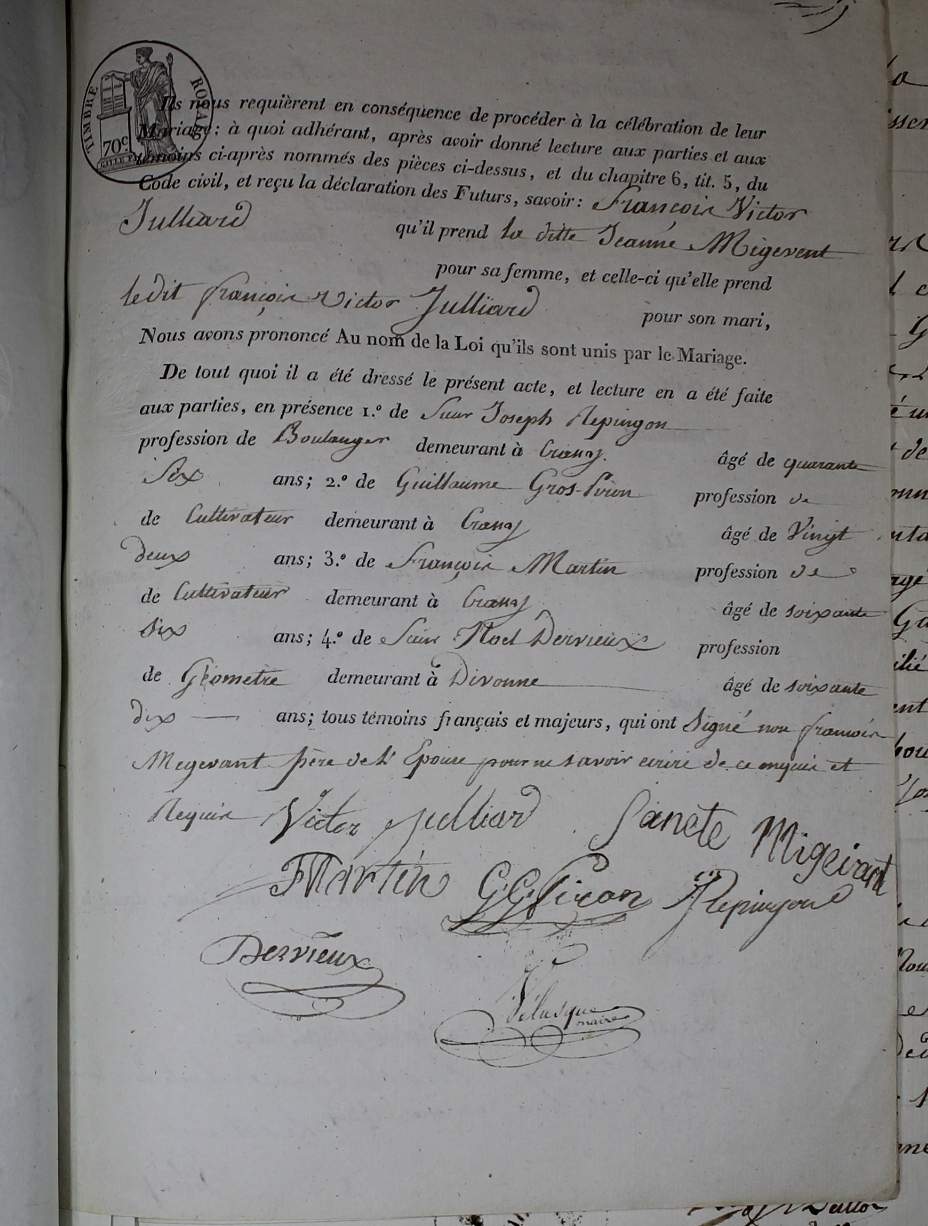 TIMBRE ROYAL
70c
Ils nous requièrent en conséquence de procéder à la célébration de leur
Mariage : à quoi adhérant, après avoir donné lecture aux parties et aux
témoins ci-après nommés des pièces ci-dessus, et du chapitre 6, tit. 5, du
Code civil, et reçu la déclaration des Futurs, savoir : François Victor
Julliard qu'il prend la ditte Jeanne Migevent
pour sa femme, et celle-ci qu'elle prend
ledit françois Victor Julliard pour son mari,
Nous avons prononcé Au nom de la Loi qu'ils sont unis par le Mariage.
De tout quoi il a été dressé le présent acte, et lecture en a été faite
aux parties, en présence 1.º de Joseph Repingon
profession de Boulanger demeurant à Crassy. âgé de quarante
Six ans; 2.º de Guillaume Gros-Piron profession de
de Cultivateur demeurant à Crassy âgé de Vingt
deux ans; 3.º de François Martin profession de
de Cultivateur demeurant à Crassy âgé de soixante
Six ans; 4.º de Noel Dervieux profession
de Géometre demeurant à Divonne âgé de soixante
dix ans; tous témoins français et majeurs, qui ont Signé non francois
Megevant père de l'Epouse pour ne savoir ecrire de ce enquis et
Requis Victor Julliard Janete Migeivant
F Martin G Gs Piron J Repingon
Dervieux
maire